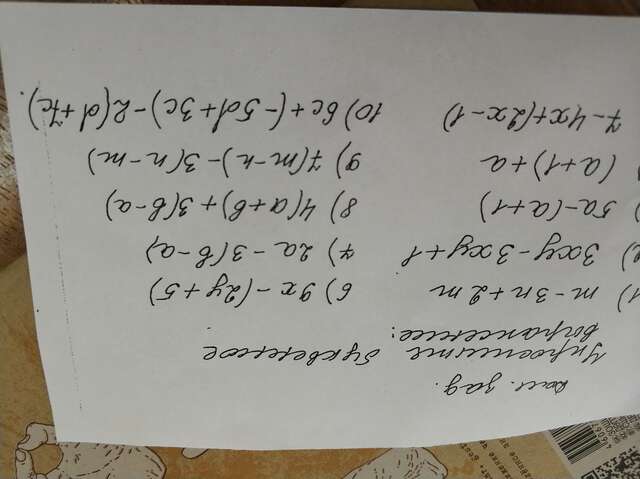 Дом. зад.
Упростите буквенное
выражение:
1) m-3n+2m
3xy-3xy+1
5a-(a+1)
(a+1)+a
7-4x+(2x-1)
6) 9x-(2y+5)
7) 2a-3(b-a)
8) 4(a+b)+3(b-a)
9) 7(m-n)-3(n-m)
10) 6c+(-5d+3c)-2(d+7c).